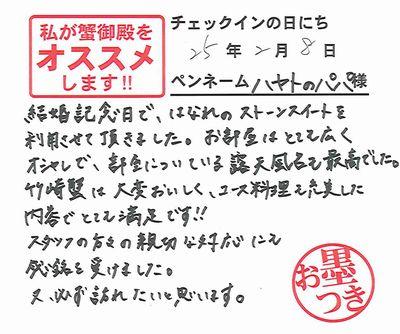 私が蟹御殿を
オススメ
します!!
チェックインの日にち
25年2月8日
ペンネーム ハヤトのパパ様
結婚記念日で、はなれのストーンスイートを
利用させて頂きました。お部屋はとても広く
オシャレで、部屋についている露天風呂も最高でした。
竹崎蟹は大変おいしく、コース料理も充実した
内容でとても満足です!!
スタッフの方々の親切な対応にも
感銘を受けました。
又、必ず訪れたいと思います。
お墨
つき